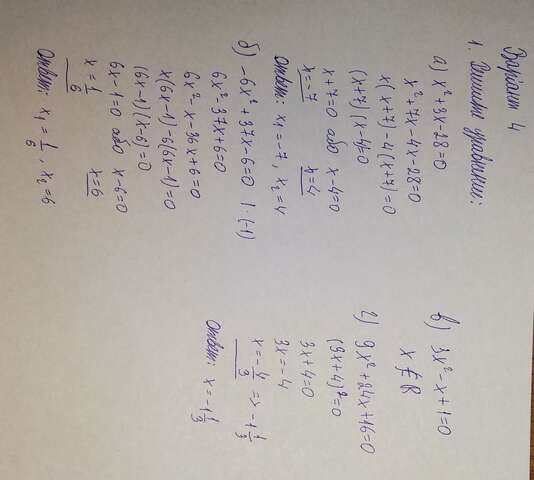 Варіант 4
1. Решить уравнения:
а) x² + 3x - 28 = 0
x² + 7x - 4x - 28 = 0
x(x+7) - 4(x+7) = 0
(x+7)(x-4) = 0
x+7=0 або x-4=0
x=-7 x=4
Ответ: x₁ = -7, x₂ = 4
б) -6x² + 37x - 6 = 0 | · (-1)
6x² - 37x + 6 = 0
6x² - x - 36x + 6 = 0
x(6x-1) - 6(6x-1) = 0
(6x-1)(x-6) = 0
6x-1=0 або x-6=0
x = 1/6 x=6
Ответ: x₁ = 1/6, x₂ = 6
в) 3x² - x + 1 = 0
x ∉ R
г) 9x² + 24x + 16 = 0
(3x+4)² = 0
3x+4=0
3x=-4
x = -4/3 => -1 1/3
Ответ: x = -1 1/3